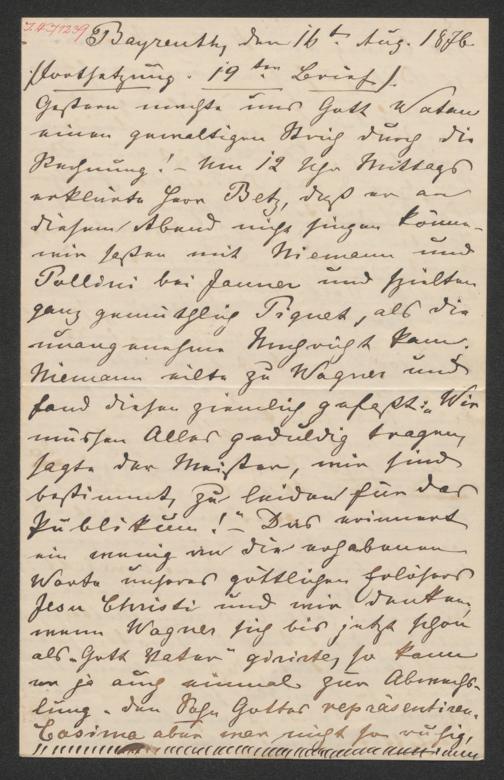 Bayreuth, den 16ten Aug. 1876
(Fortsetzung. 19ter Brief).
Gestern machte uns Gott Wotan
einen gewaltigen Strich durch die
Rechnung! – Um 12 Uhr Mittags
erklärte Herr Betz, daß er an
diesem Abend nicht singen könne –
wir saßen mit Niemann und
Pollini bei Janner und spielten
ganz gemüthlich Piquet, als die
unangenehme Nachricht kam.
Niemann eilte zu Wagner und
fand diesen ziemlich gefaßt: „Wir
müssen Alles geduldig tragen,
sagte der Meister, wir sind
bestimmt, zu leiden für das
Publikum!“ – Das erinnert
ein wenig an die erhabenen
Worte unseres göttlichen Erlösers
Jesu Christi und wir denken,
wenn Wagner sich bis jetzt schon
als „Gott Vater“ gerirte, so kann
er ja auch einmal zur Abwechs-
lung den Sohn Gottes repräsentiren.
Cosima aber war nicht so ruhig,